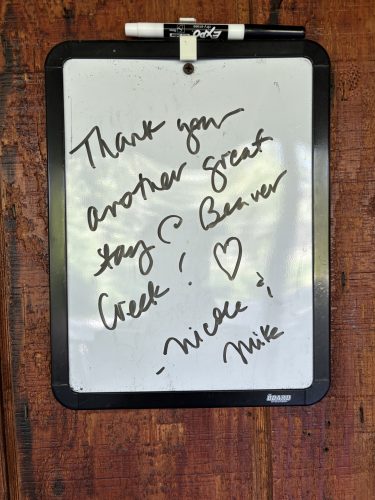 EXPO
Thank you
another great
stay @ Beaver
Creek! ♡
- Nicole &
Mike
THE BOARD DUDES